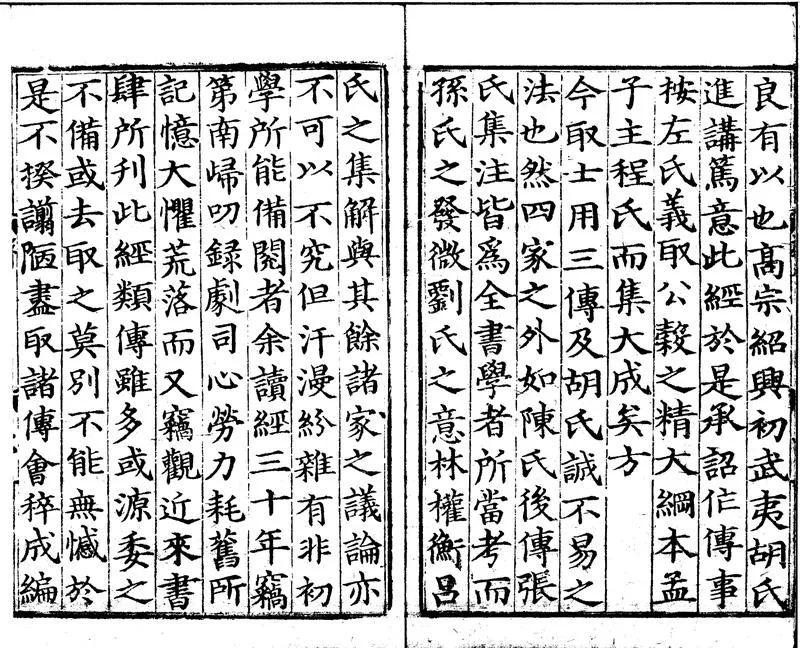 良有以也髙宗紹興初武夷胡氏
進講篤意此經於是承詔作傳事
按左氏義取公穀之精大綱本孟
子主程氏而集大成矣方
今取士用三傳及胡氏誠不易之
法也然四家之外如陳氏後傳張
氏集注皆為全書學者所當考而
孫氏之發微劉氏之意林權衡呂
氏之集解與其餘諸家之議論亦
不可以不究但汗漫紛雜有非初
學所能備閱者余讀經三十年竊
第南歸叨録劇司心勞力耗舊所
記憶大懼荒落而又竊觀近來書
肆所刊此經類傳雖多或源委之
不備或去取之莫別不能無憾於
是不揆譾陋盡取諸傳會稡成編